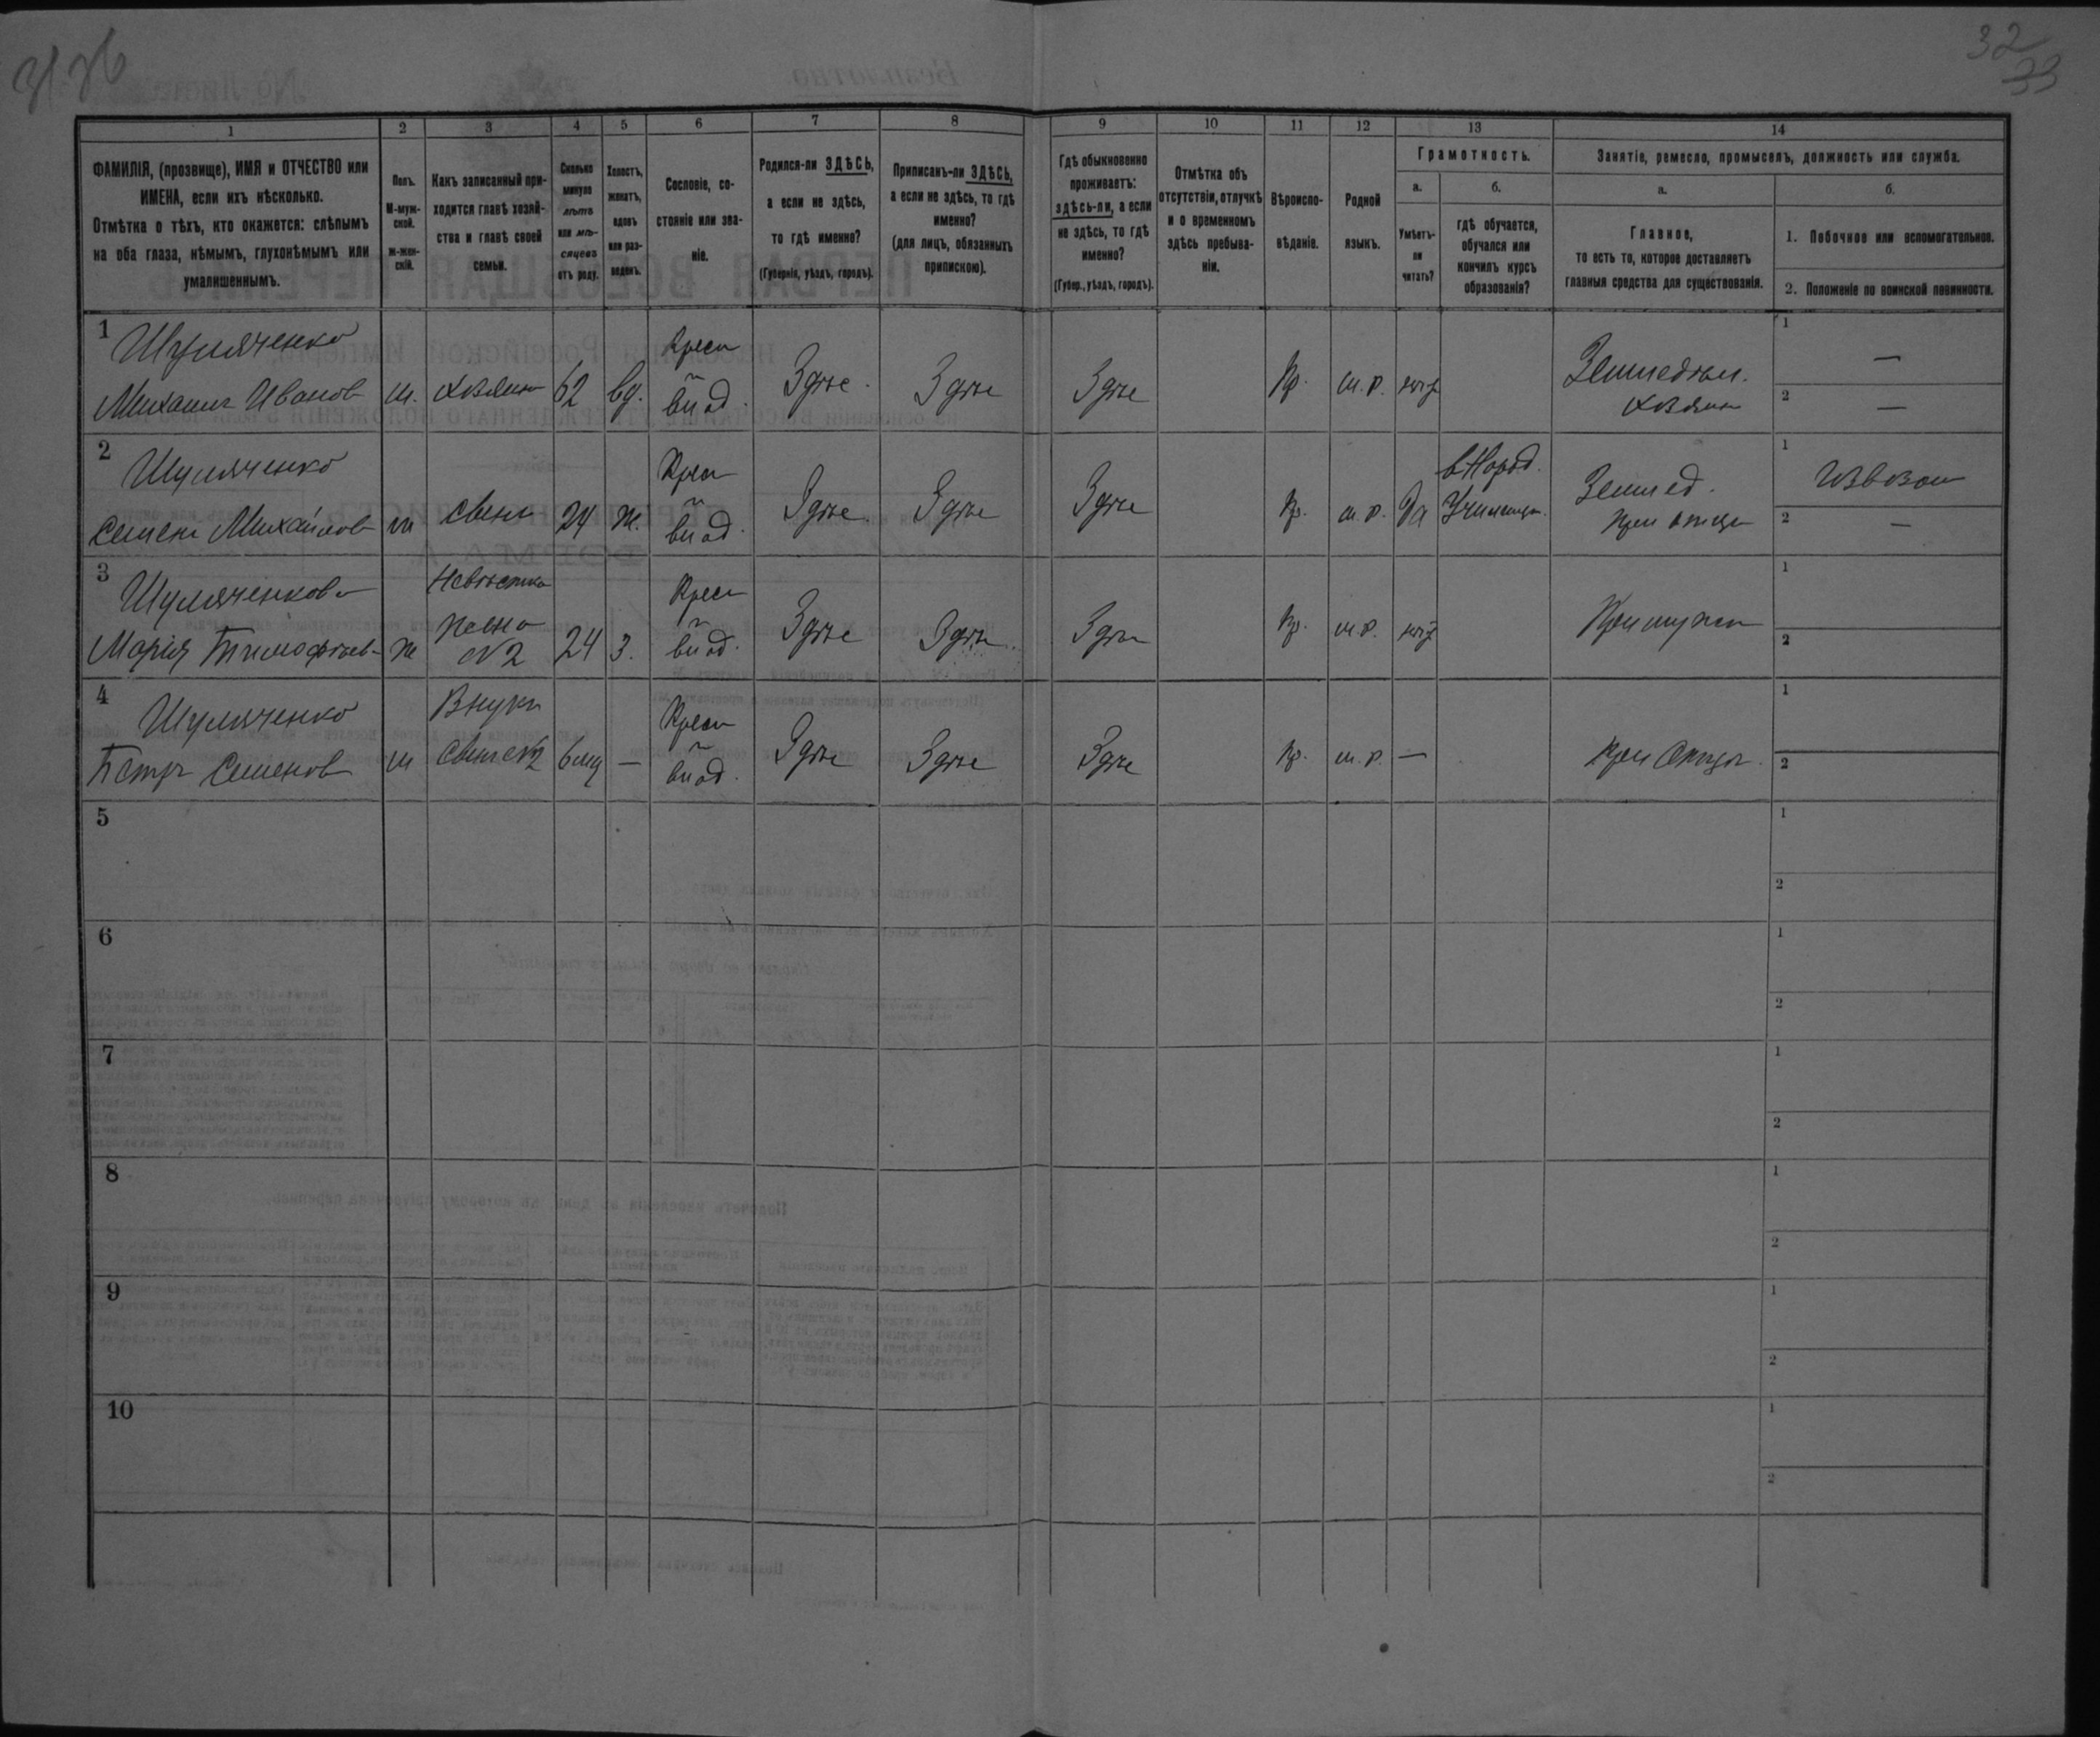 3176
32
33
1
2
3
4
5
6
7
8
9
10
11
12
13
14
ФАМИЛІЯ, (прозвище), ИМЯ и ОТЧЕСТВО или
ИМЕНА, если ихъ нѣсколько.
Отмѣтка о тѣхъ, кто окажется: слѣпымъ
на оба глаза, нѣмымъ, глухонѣмымъ или
умалишеннымъ.
Полъ.
М-муж-
ской.
ж-жен-
скій.
Какъ записанный при-
ходится главѣ хозяй-
ства и главѣ своей
семьи.
Сколько
минуло
лѣтъ
или мѣ-
сяцевъ
отъ роду.
Холостъ,
женатъ,
вдовъ
или раз-
веденъ.
Сословіе, со-
стояніе или зва-
ніе.
Родился-ли ЗДѢСЬ,
а если не здѣсь,
то гдѣ именно?
(Губернія, уѣздъ, городъ).
Приписанъ-ли ЗДѢСЬ,
а если не здѣсь, то гдѣ
именно?
(для лицъ, обязанныхъ
припискою).
Гдѣ обыкновенно
проживаетъ:
здѣсь-ли, а если
не здѣсь, то гдѣ
именно?
(Губер., уѣздъ, городъ).
Отмѣтка объ
отсутствіи, отлучкѣ
и о временномъ
здѣсь пребыва-
ніи.
Вѣроиспо-
вѣданіе.
Родной
языкъ.
Грамотность.
а.
Умѣетъ-
ли
читать?
б.
гдѣ обучается,
обучался или
кончилъ курсъ
образованія?
Занятіе, ремесло, промыселъ, должность или служба.
а.
Главное,
то есть то, которое доставляетъ
главныя средства для существованія.
б.
1. Побочное или вспомогательное.
2. Положеніе по воинской повинности.
1
Шуляченко
Михаилъ Ивановъ
м.
хозяинъ
62
вд.
Крест
Здѣсе
Здѣсе
Здѣсе
Пр.
м.р.
нѣт
Земледѣл.
хозяин
1 —
2 —
2
Шуляченко
Семенъ Михайлов
м
Сынъ
24
ж.
Крест
Здѣсе
Здѣсе
Здѣсе
Пр.
м.р.
Да
в Народ.
Училищѣ
Землед.
при отцѣ
1 Извозом
2 —
3
Шуляченкова
Марія Тимофѣев
ж
Невѣстка
жена
№2
24
З.
Крест
Здѣсе
Здѣсе
Здѣсе
Пр.
м.р.
нѣт
При мужѣ
1
2
4
Шуляченко
Петръ Семенов
м
Внукъ
Сынъ №2
6 мц
—
Крест
Здѣсе
Здѣсе
Здѣсе
Пр.
м.р.
—
при Отцѣ
1
2
5
1
2
6
1
2
7
1
2
8
1
2
9
1
2
10
1
2